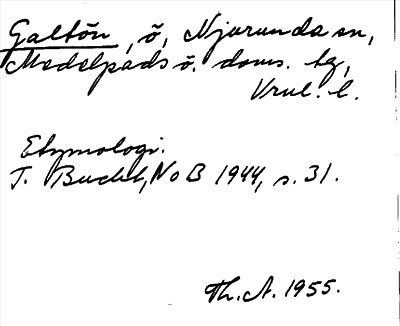 Galtön, ö, Njurunda sn,
Medelpads ö. doms. tg,
Vnul. l.
Etymologi.
T. Bucht, NoB 1944, s. 31.
Th. A. 1955.